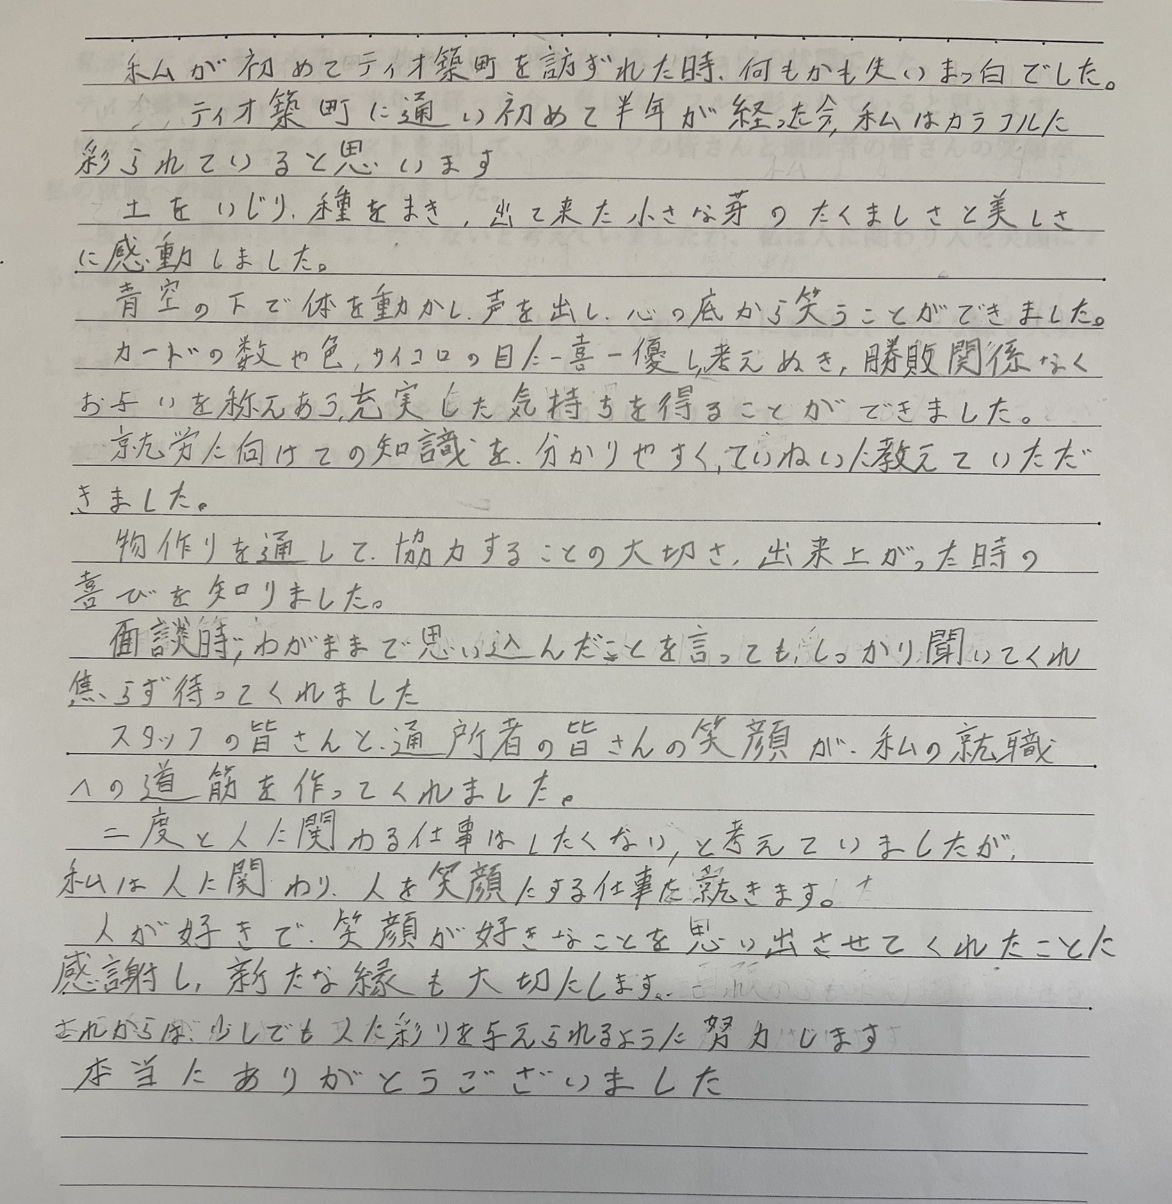 私が初めてティオ築町を訪ずれた時、何もかも失いまっ白でした。
ティオ築町に通い初めて半年が経った今、私はカラフルに
彩られていると思います
土をいじり、種をまき、出て来た小さな芽のたくましさと美しさ
に感動しました。
青空の下で体を動かし、声を出し、心の底から笑うことができました。
カードの数や色、サイコロの目に一喜一優し、考えぬき、勝敗関係なく
お互いを称えあう、充実した気持ちを得ることができました。
就労に向けての知識を、分かりやすく、ていねいに教えていただ
きました。
物作りを通して、協力することの大切さ、出来上がった時の
喜びを知りました。
面談時、わがままで思い込んだことを言っても、しっかり聞いてくれ
焦らず待ってくれました
スタッフの皆さんと、通所者の皆さんの笑顔が、私の就職
への道筋を作ってくれました。
二度と人に関わる仕事はしたくない、と考えていましたが、
私は人に関わり、人を笑顔にする仕事に就きます。
人が好きで、笑顔が好きなことを思い出させてくれたことに
感謝し、新たな縁も大切にします。
これからは、少しでも人に彩りを与えられるように努力します
本当にありがとうございました